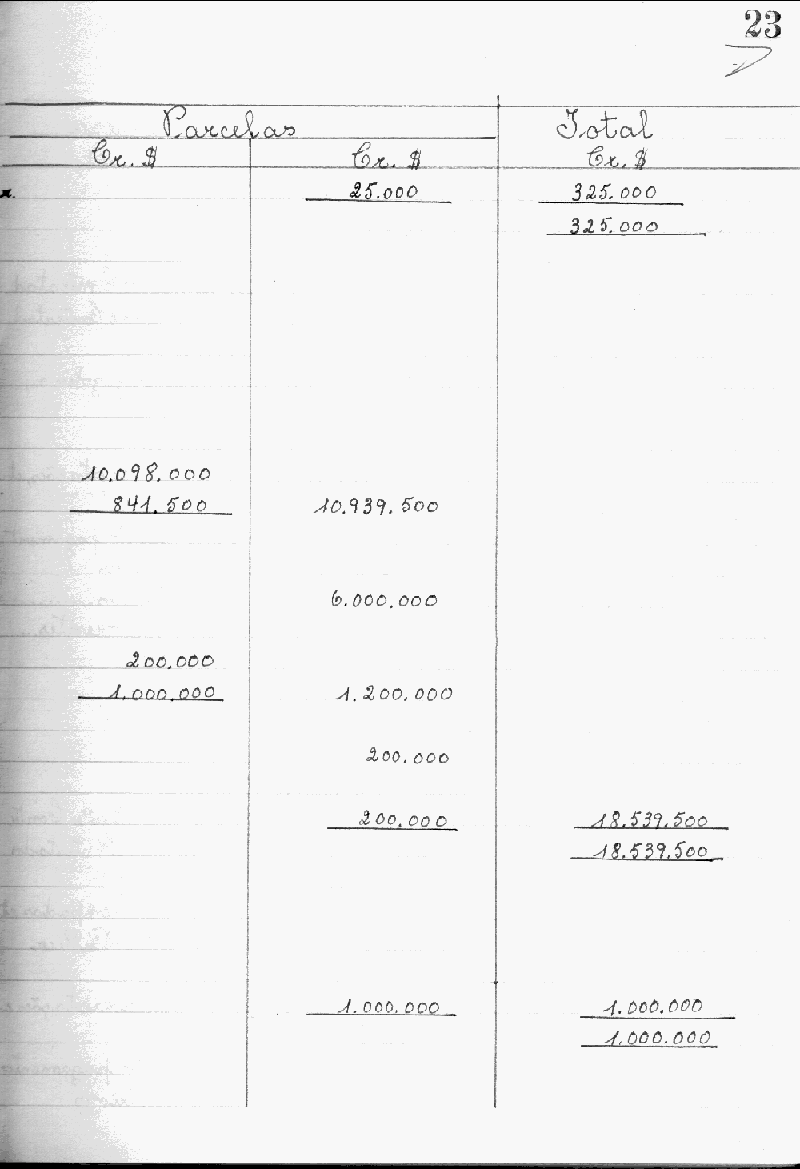 23
Parcelas Total
Cr. $ Cr. $ Cr. $
25.000 325.000
325.000
10.098.000
841.500 10.939.500
6.000.000
200.000
1.000.000 1.200.000
200.000
200.000 18.539.500
18.539.500
1.000.000 1.000.000
1.000.000